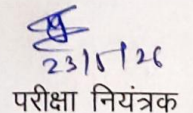 23/5/26
परीक्षा नियंत्रक